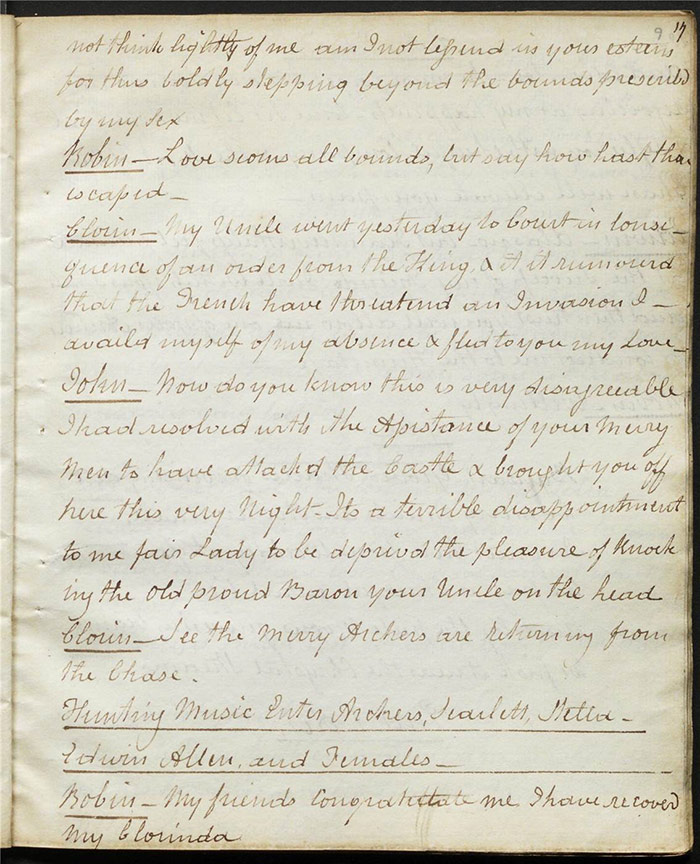 9 17
not think lightly of me am I not lessend in your esteem
for thus boldly stepping beyond the bounds prescrib'd
by my sex
Robin — Love scorns all bounds, but say how hast thou
escaped —
Clorin — My Uncle went yesterday to Court in conse-
quence of an order from the King, & it it rumourd
that the French have threatend an Invasion I —
availd myself of my absence & fled to you my Love —
John — Now do you know this is very disagreeable
I had resolved with the Assistance of your Merry
Men to have attackd the Castle & brought you off
here this very Night — Its a terrible disappointment
to me fair Lady to be deprivd the pleasure of knock
ing the old proud Baron your Uncle on the head
Clorin — See the Merry Archers are returning from
the Chase.
Hunting Music Enter Archers, Scarlett, Stella —
Edwin Allen, and Females —
Robin — My friends congratulate me I have recoverd
my Clorinda